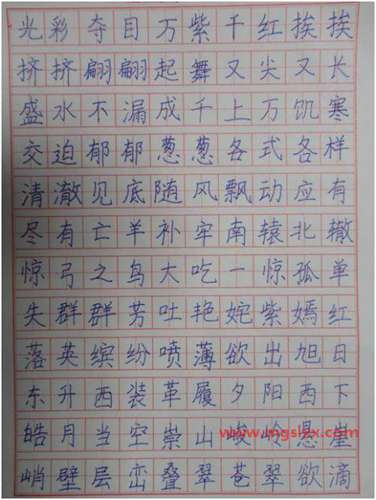 光彩夺目万紫千红挨挨
挤挤翩翩起舞又尖又长
盛水不漏成千上万饥寒
交迫郁郁葱葱各式各样
清澈见底随风飘动应有
尽有亡羊补牢南辕北辙
惊弓之鸟大吃一惊孤单
失群群芳吐艳姹紫嫣红
落英缤纷喷薄欲出旭日
东升西装革履夕阳西下
皓月当空崇山峻岭悬崖
峭壁层峦叠翠苍翠欲滴
www.mgslzx.com